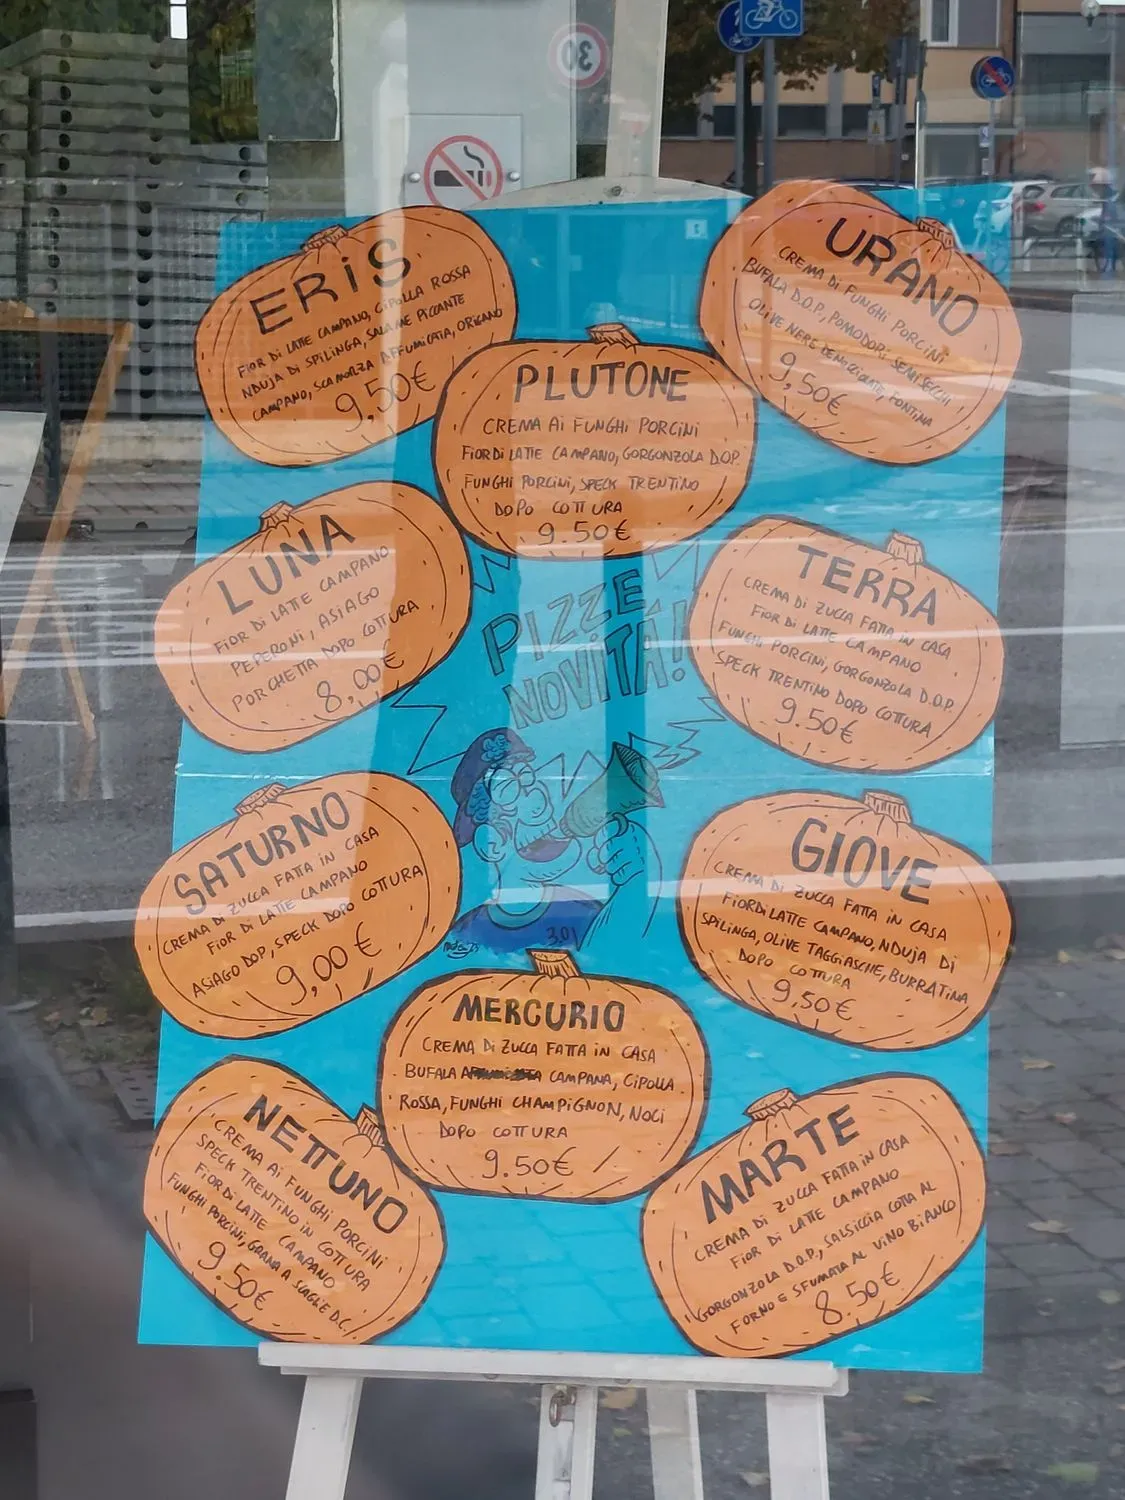 30
ERIS
FIOR DI LATTE CAMPANO, CIPOLLA ROSSA
NDUJA DI SPILINGA, SALAME PICCANTE
CAMPANO, SCAMORZA AFFUMICATA, ORIGANO
9,50€
URANO
CREMA DI FUNGHI PORCINI
BUFALA D.O.P., POMODORI SEMISECCHI
OLIVE NERE DENOCCIOLATE, FONTINA
9,50€
PLUTONE
CREMA AI FUNGHI PORCINI
FIOR DI LATTE CAMPANO, GORGONZOLA D.O.P.
FUNGHI PORCINI, SPECK TRENTINO
DOPO COTTURA
9.50€
LUNA
FIOR DI LATTE CAMPANO
PEPERONI, ASIAGO
PORCHETTA DOPO COTTURA
8,00€
PIZZE
NOVITÀ!
TERRA
CREMA DI ZUCCA FATTA IN CASA
FIOR DI LATTE CAMPANO
FUNGHI PORCINI, GORGONZOLA D.O.P.
SPECK TRENTINO DOPO COTTURA
9.50€
SATURNO
CREMA DI ZUCCA FATTA IN CASA
FIOR DI LATTE CAMPANO
ASIAGO DOP, SPECK DOPO COTTURA
9,00€
GIOVE
CREMA DI ZUCCA FATTA IN CASA
FIOR DI LATTE CAMPANO, NDUJA DI
SPILINGA, OLIVE TAGGIASCHE, BURRATINA
DOPO COTTURA
9,50€
MERCURIO
CREMA DI ZUCCA FATTA IN CASA
BUFALA CAMPANA, CIPOLLA
ROSSA, FUNGHI CHAMPIGNON, NOCI
DOPO COTTURA
9.50€
NETTUNO
CREMA AI FUNGHI PORCINI
SPECK TRENTINO IN COTTURA
FIOR DI LATTE CAMPANO
FUNGHI PORCINI, GRANA A SCAGLIE D.C.
9.50€
MARTE
CREMA DI ZUCCA FATTA IN CASA
FIOR DI LATTE CAMPANO
GORGONZOLA D.O.P., SALSICCIA COTTA AL
FORNO E SFUMATA AL VINO BIANCO
8.50€